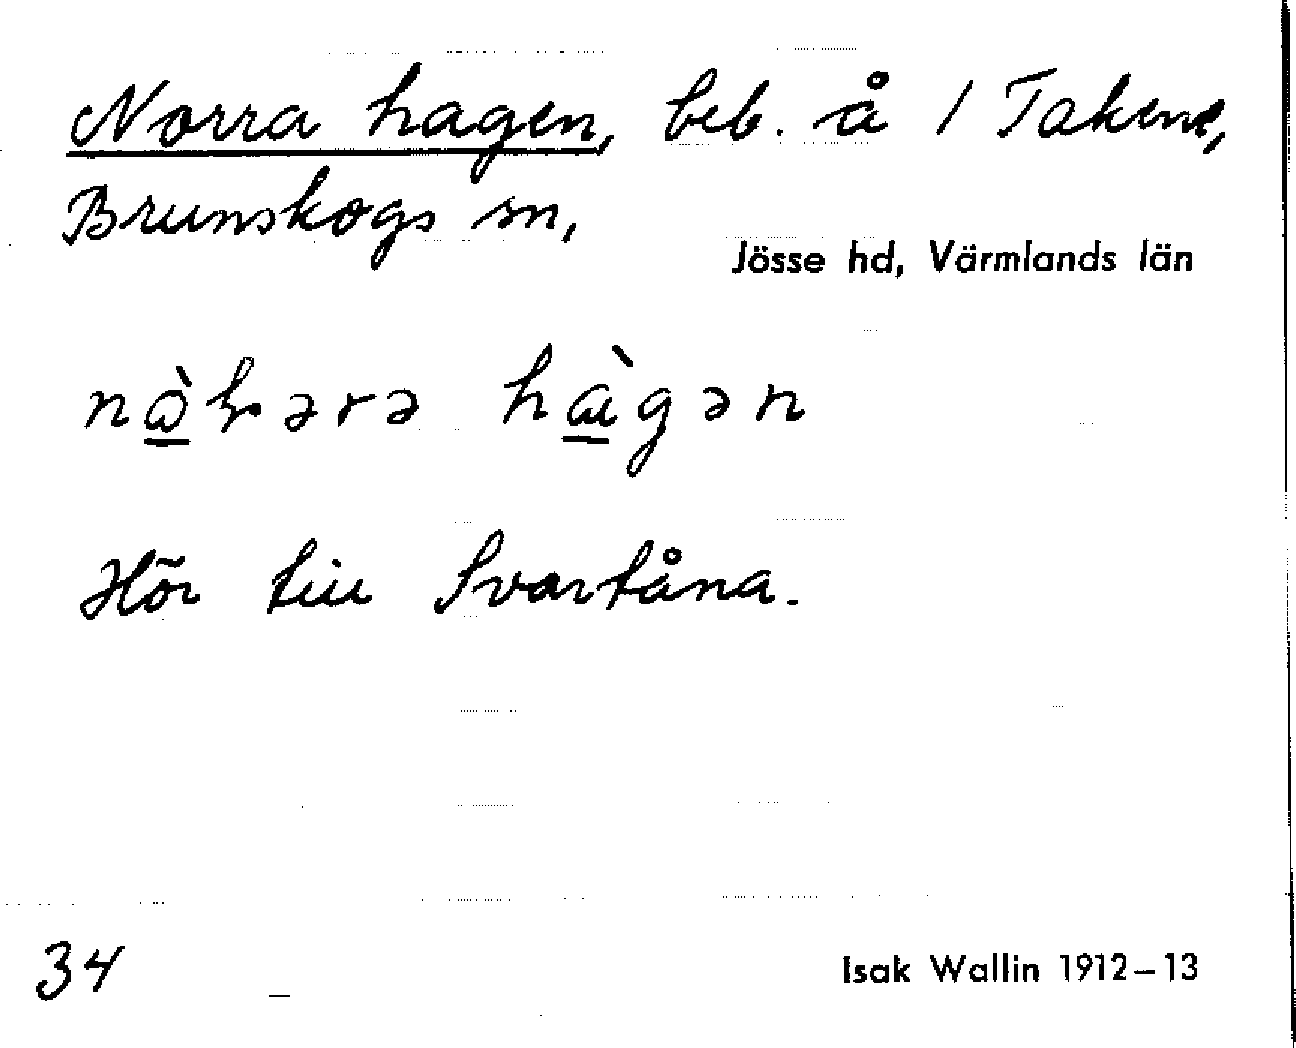 Norra hagen, beb. å 1 Takene,
Brunskogs sn,
Jösse hd, Värmlands län
hàgən
Hör till Svartåna.
34
Isak Wallin 1912-13